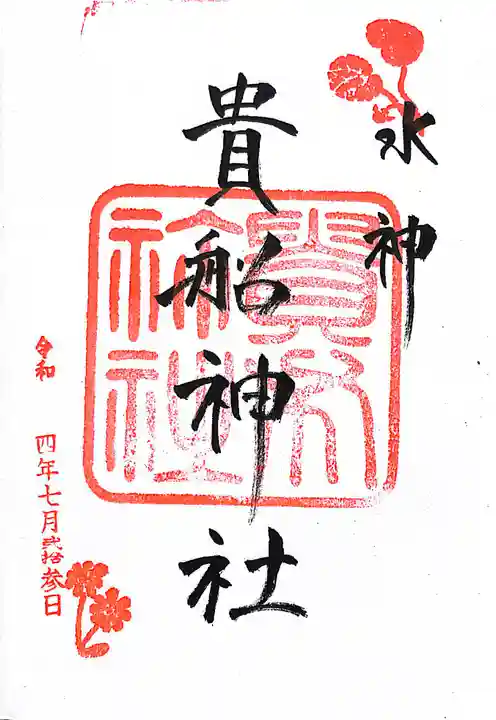 水神
貴船神社
令和 四年七月弐拾参日